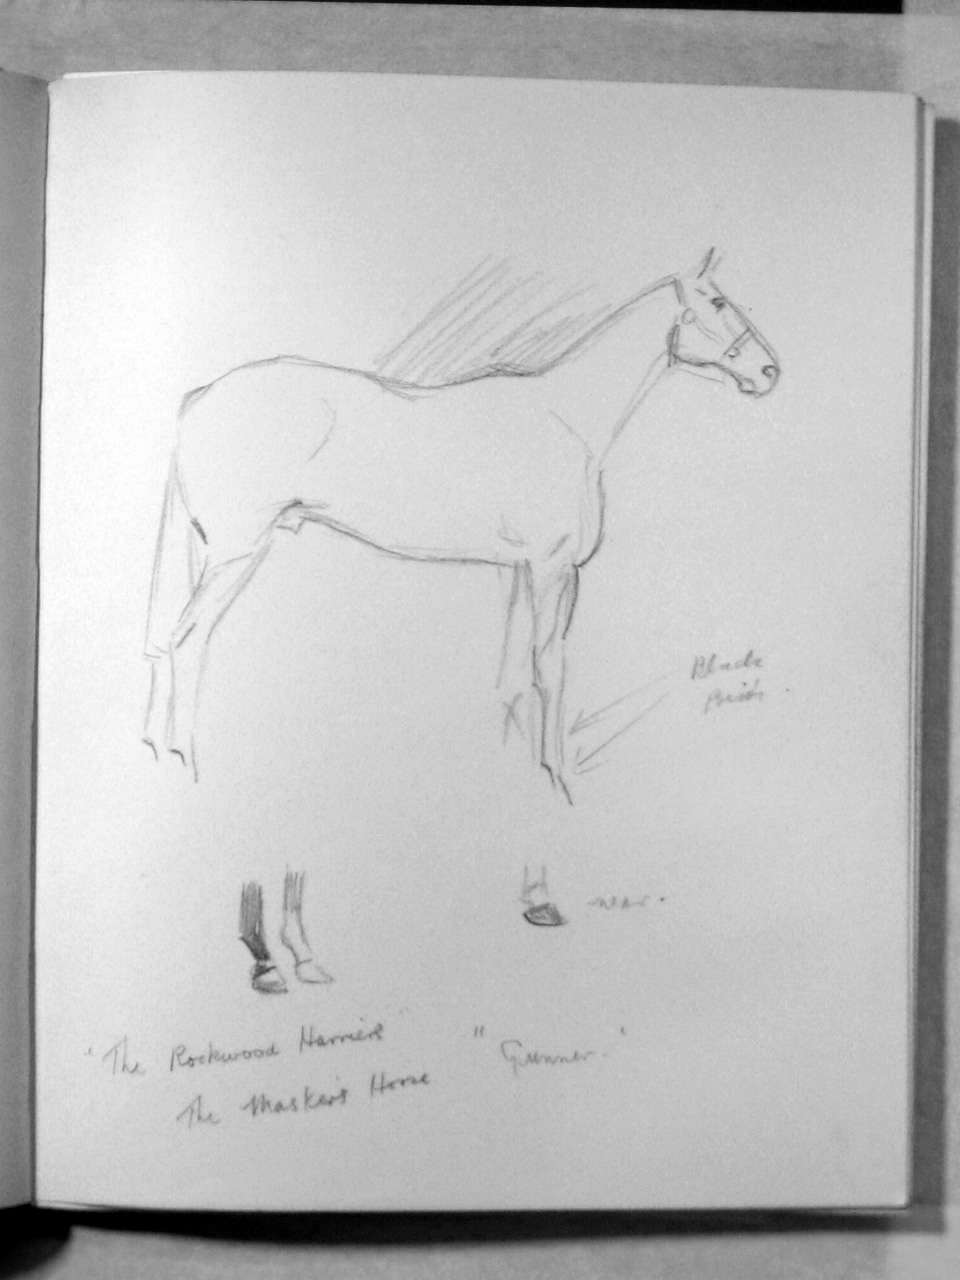 Black
near.
"The Rockwood Harriers" "Gunner."
The Master's Horse